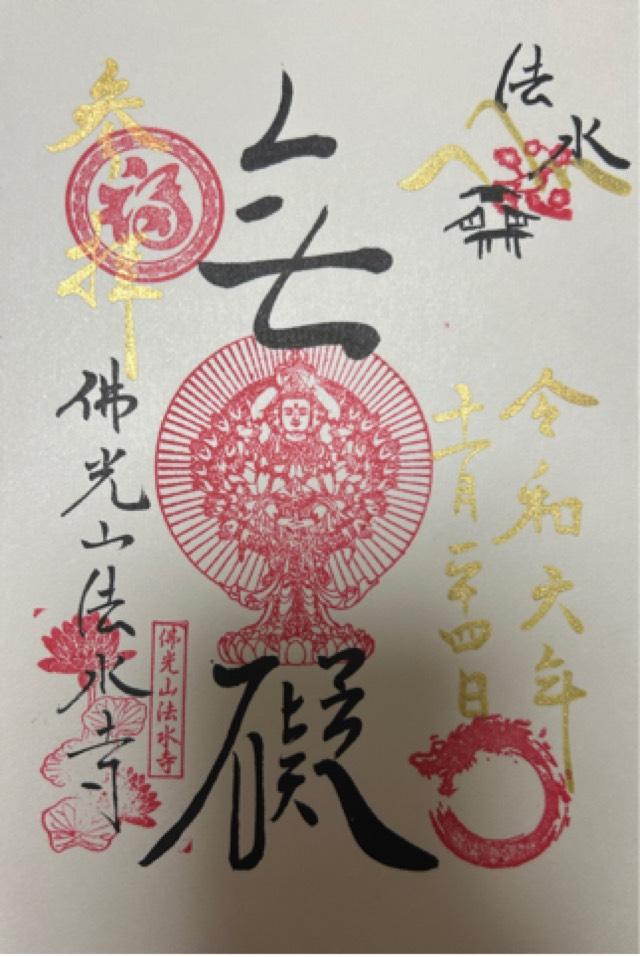 法水
令和六年
十一月二十四日
無礙
參拝
福
佛光山法水寺
佛光山法水寺